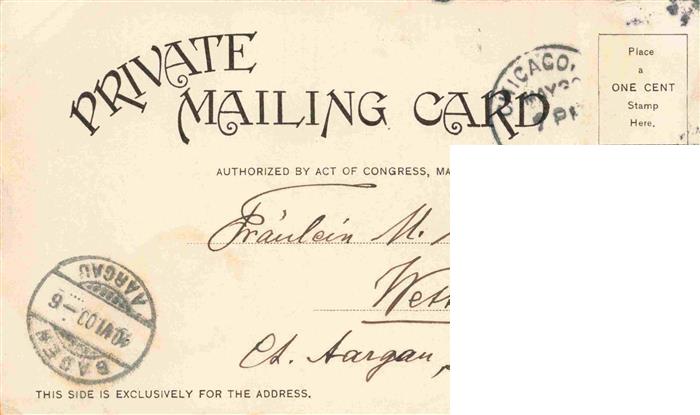 PRIVATE
MAILING CARD
CHICAGO,
Place
a
ONE CENT
Stamp
Here.
AUTHORIZED BY ACT OF CONGRESS, MA
Fräulein M.
Wett
Ct. Aargau,
BADEN
10.VI.00.–6
AARGAU
THIS SIDE IS EXCLUSIVELY FOR THE ADDRESS.